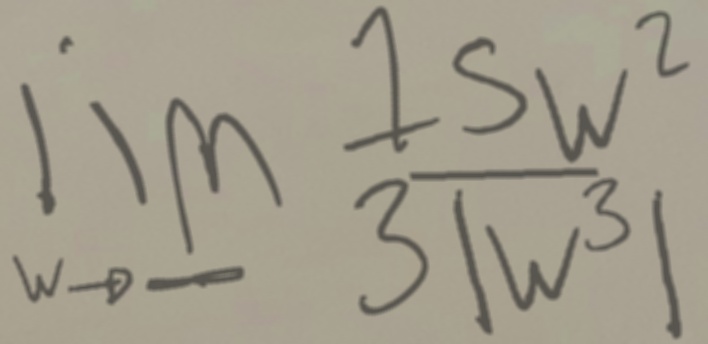 lim 15w²
w→− 3|w³|